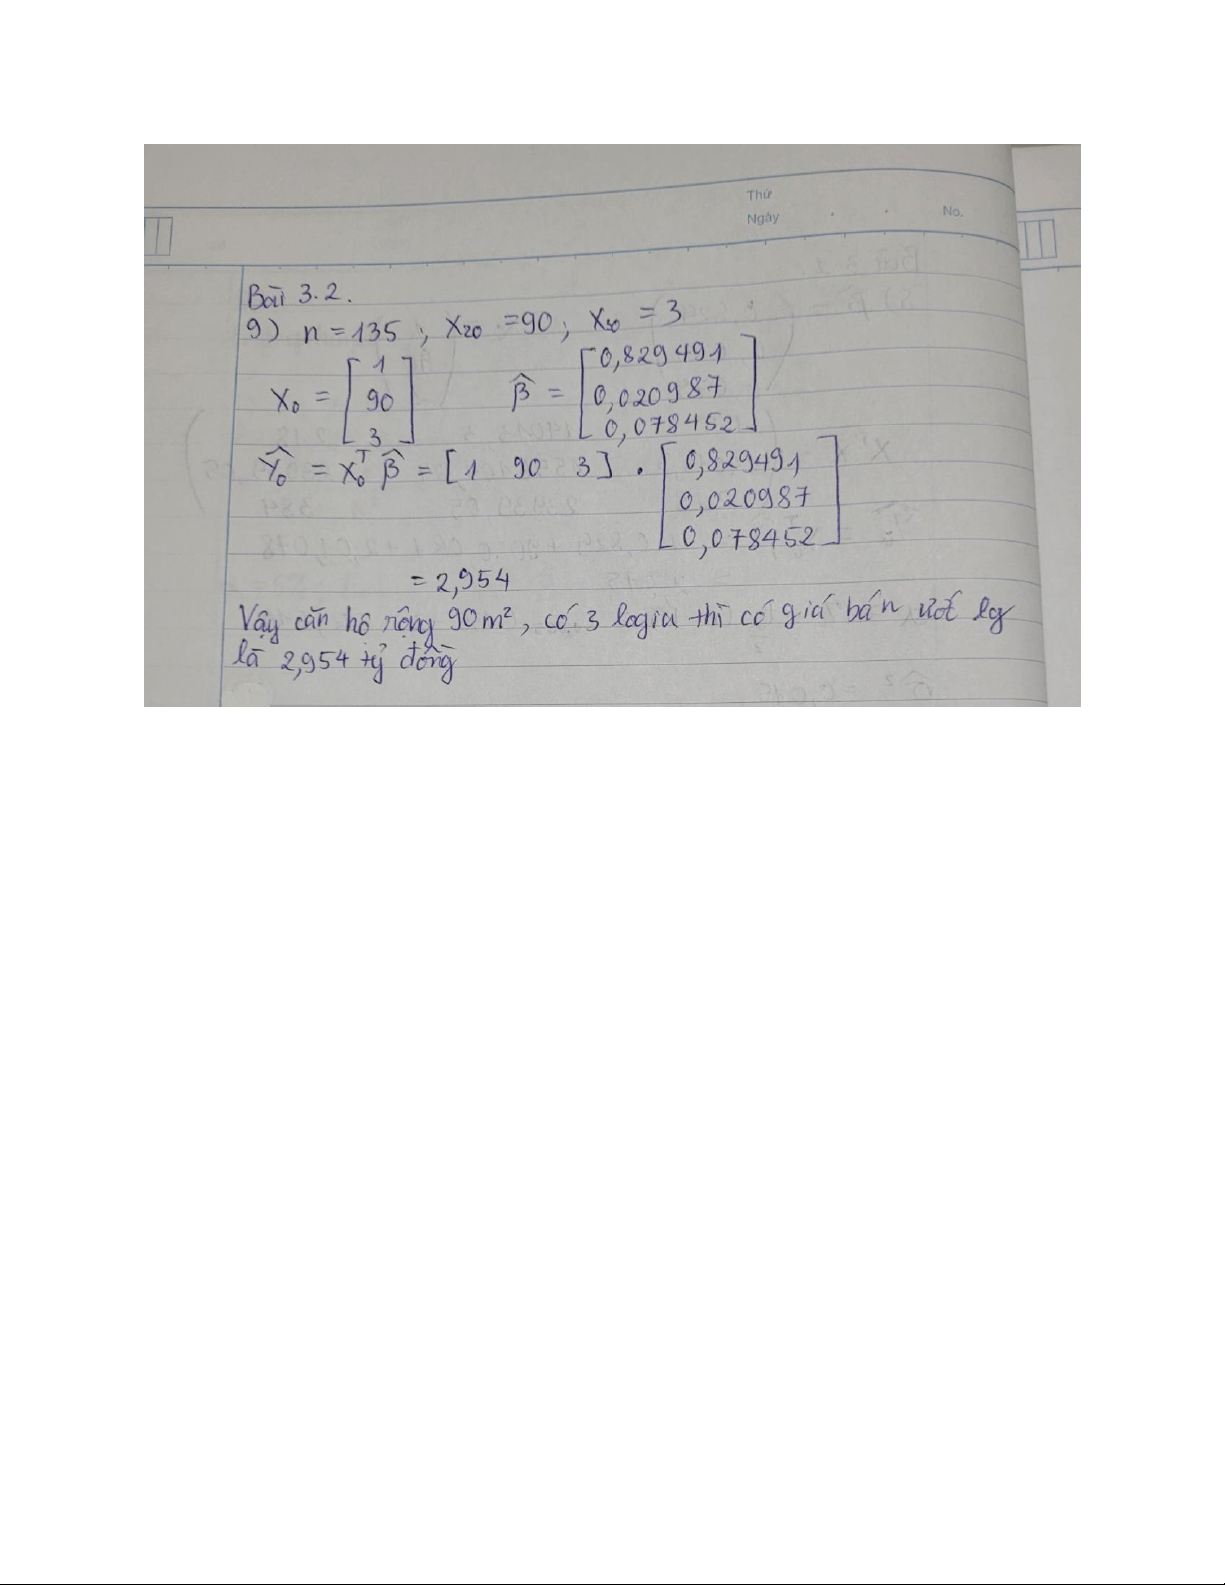 Thứ
Ngày . . No.
Bài 3.2.
9) n = 135 ; X₂₀ = 90 ; X₃₀ = 3
X₀ = [1 90 3] β̂ = [0,829491 0,020987 0,078452]
Ŷ₀ = X₀ᵀ β̂ = [1 90 3] . [0,829491 0,020987 0,078452]
= 2,954
Vậy căn hộ rộng 90m², có 3 logia thì có giá bán ước lg
là 2,954 tỷ đồng